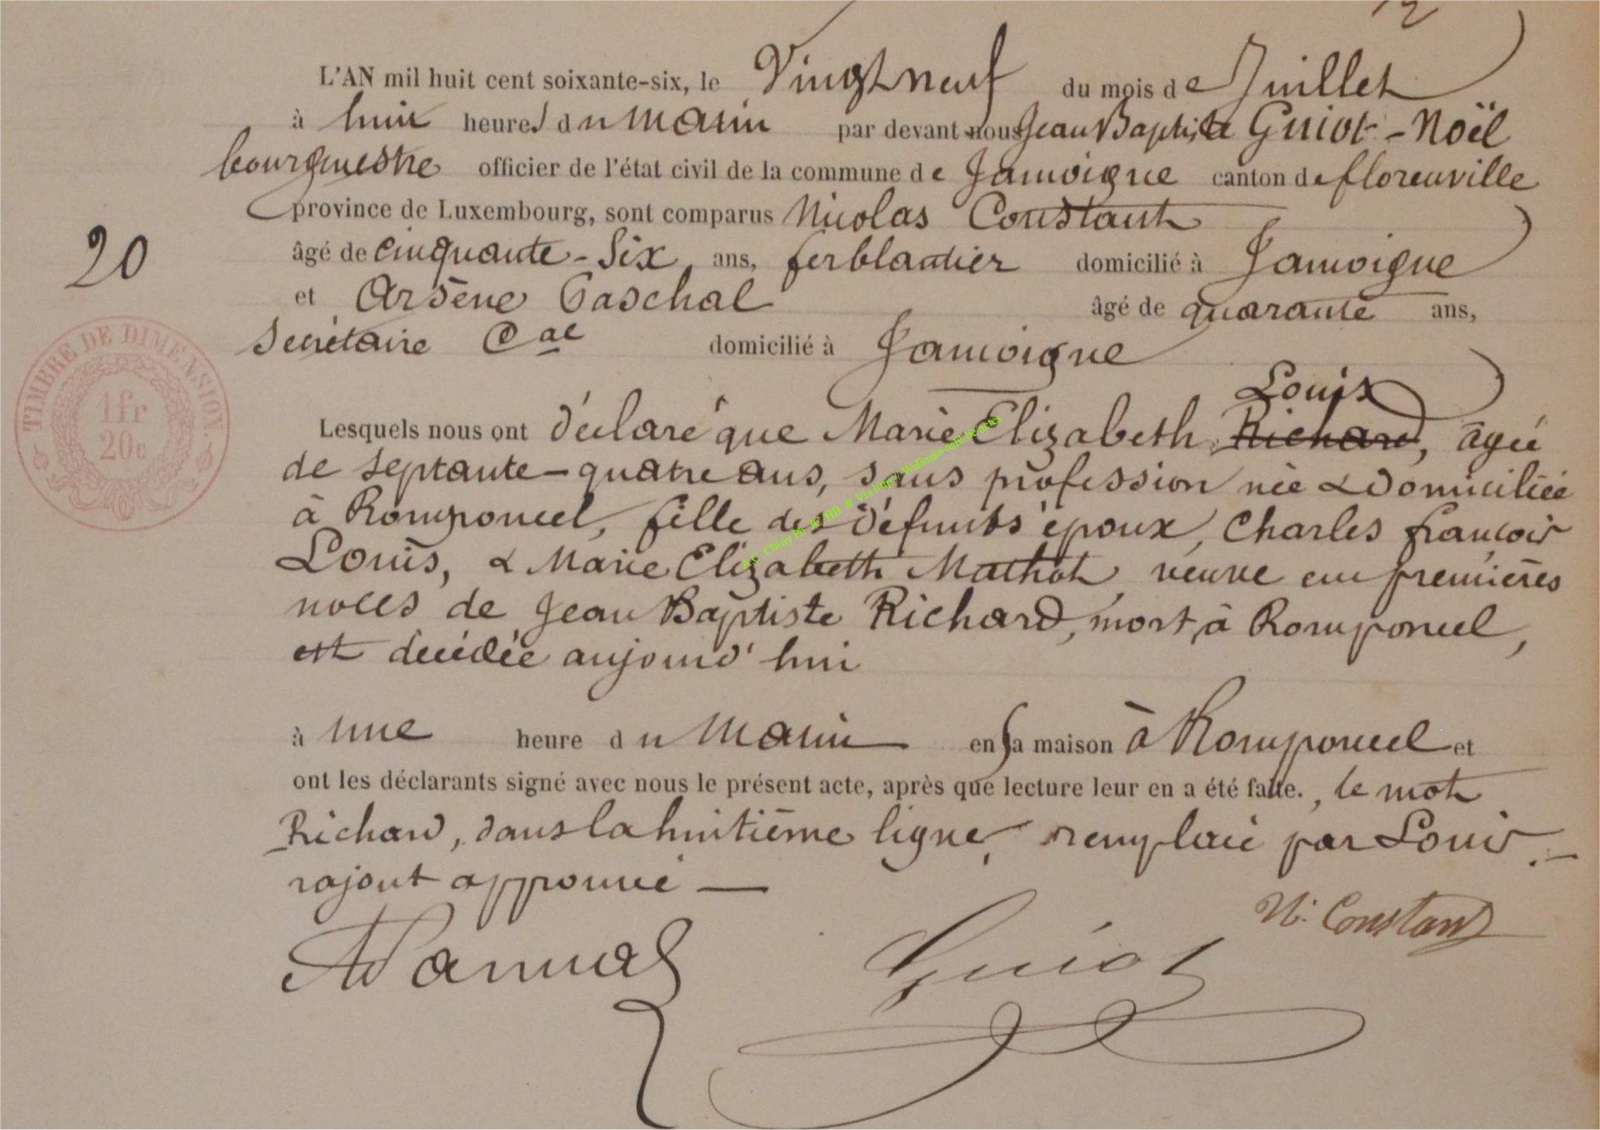 12
L'AN mil huit cent soixante-six, le Vingt neuf du mois de Juillet
à huit heures du matin par devant nous Jean Baptiste Guiot-Noël
bourgmestre officier de l'état civil de la commune de Jamoigne canton de florenville
province de Luxembourg, sont comparus Nicolas Constant
20
âgé de cinquante-six ans, ferblantier domicilié à Jamoigne
et Arsène Paschal âgé de quarante ans,
Secrétaire Cal domicilié à Jamoigne
TIMBRE DE DIMENSION.
1fr
20c
Louis
Lesquels nous ont déclaré que Marie Elizabeth Richard, âgée
de septante-quatre ans, sans profession née & domiciliée
à Romponcel, fille des défunts époux, Charles françois
Louis, & Marie Elizabeth Mathot, veuve en premières
noces de Jean Baptiste Richard, mort à Romponcel,
est décédée aujourd'hui
à une heure du matin en sa maison à Romponcel et
ont les déclarants signé avec nous le présent acte, après que lecture leur en a été faite., le mot
Richard, dans la huitième ligne, remplacé par Louis.
rajout approuvé
N. Constant
Guiot